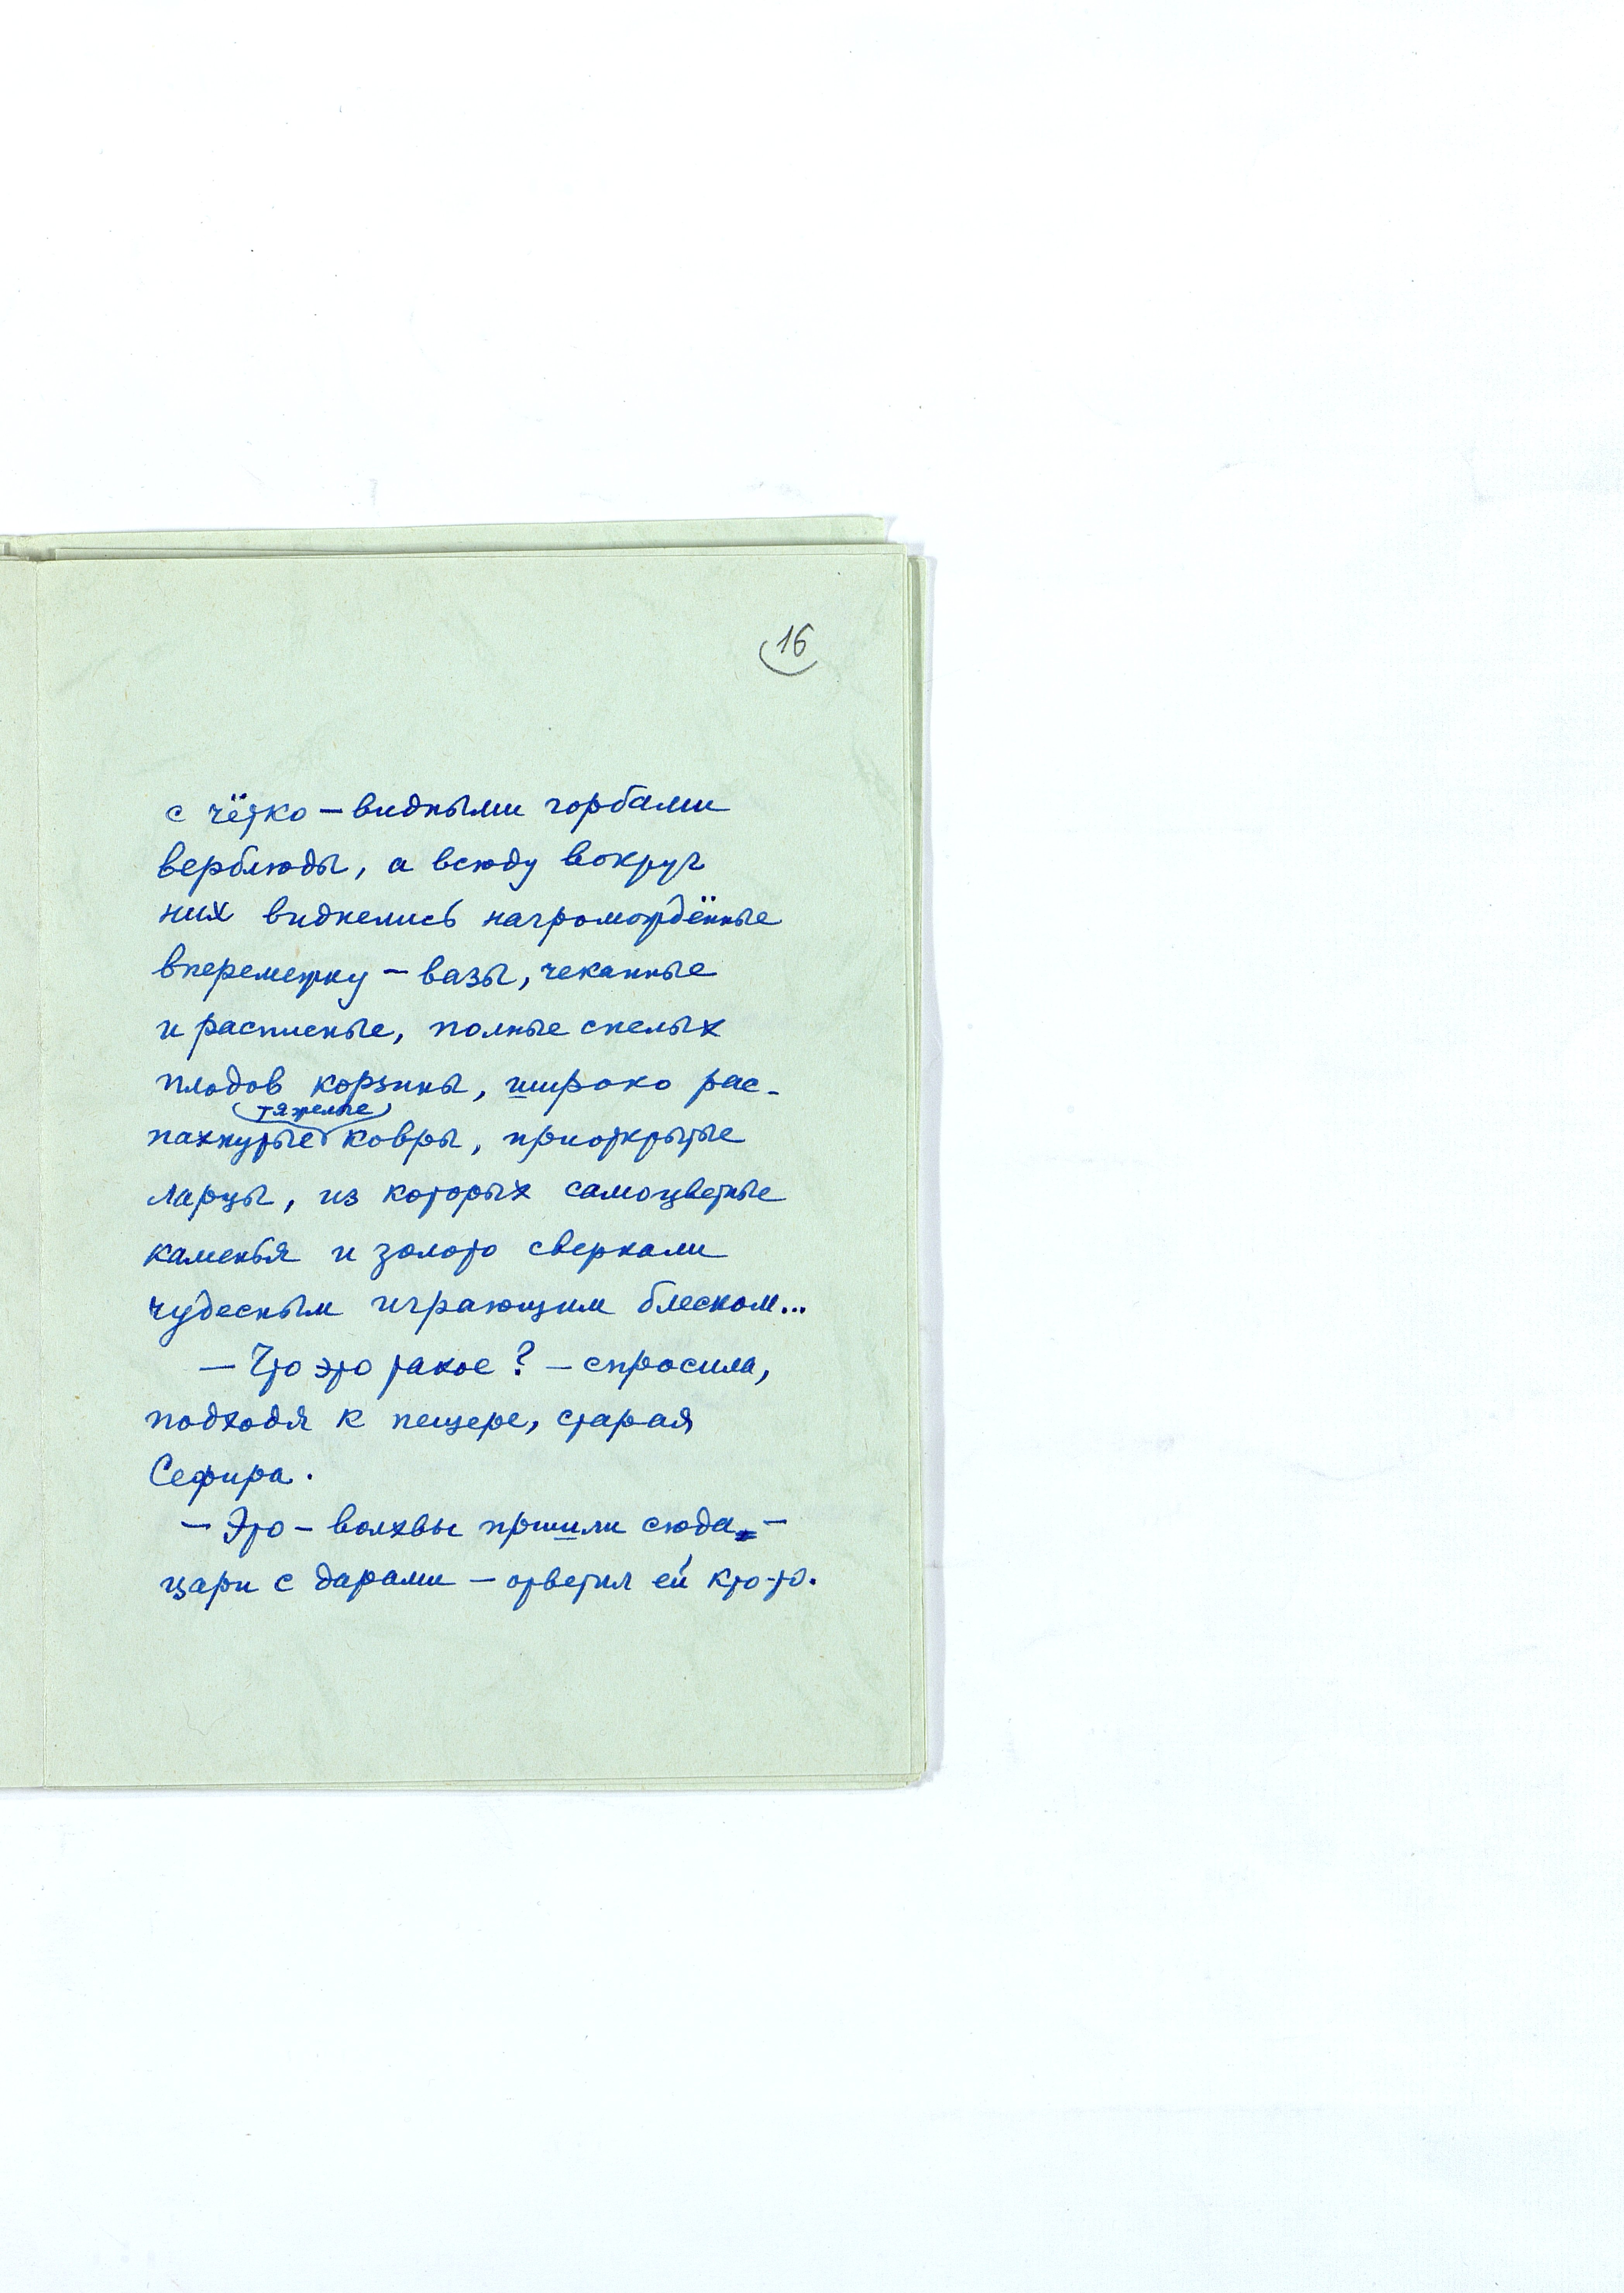 16
с чётко – видными горбами
верблюды, а всюду вокруг
них виднелись нагромождённые
вперемежку – вазы, чеканные
и расписные, полные спелых
плодов корзины, широко рас-
тяжелые
пахнутые ковры, приоткрытые
ларцы, из которых самоцветные
каменья и золото сверкали
чудесным играющим блеском...
– Что это такое? – спросила,
подходя к пещере, старая
Сефира.
– Это – волхвы пришли сюда, –
цари с дарами – ответил ей кто-то.